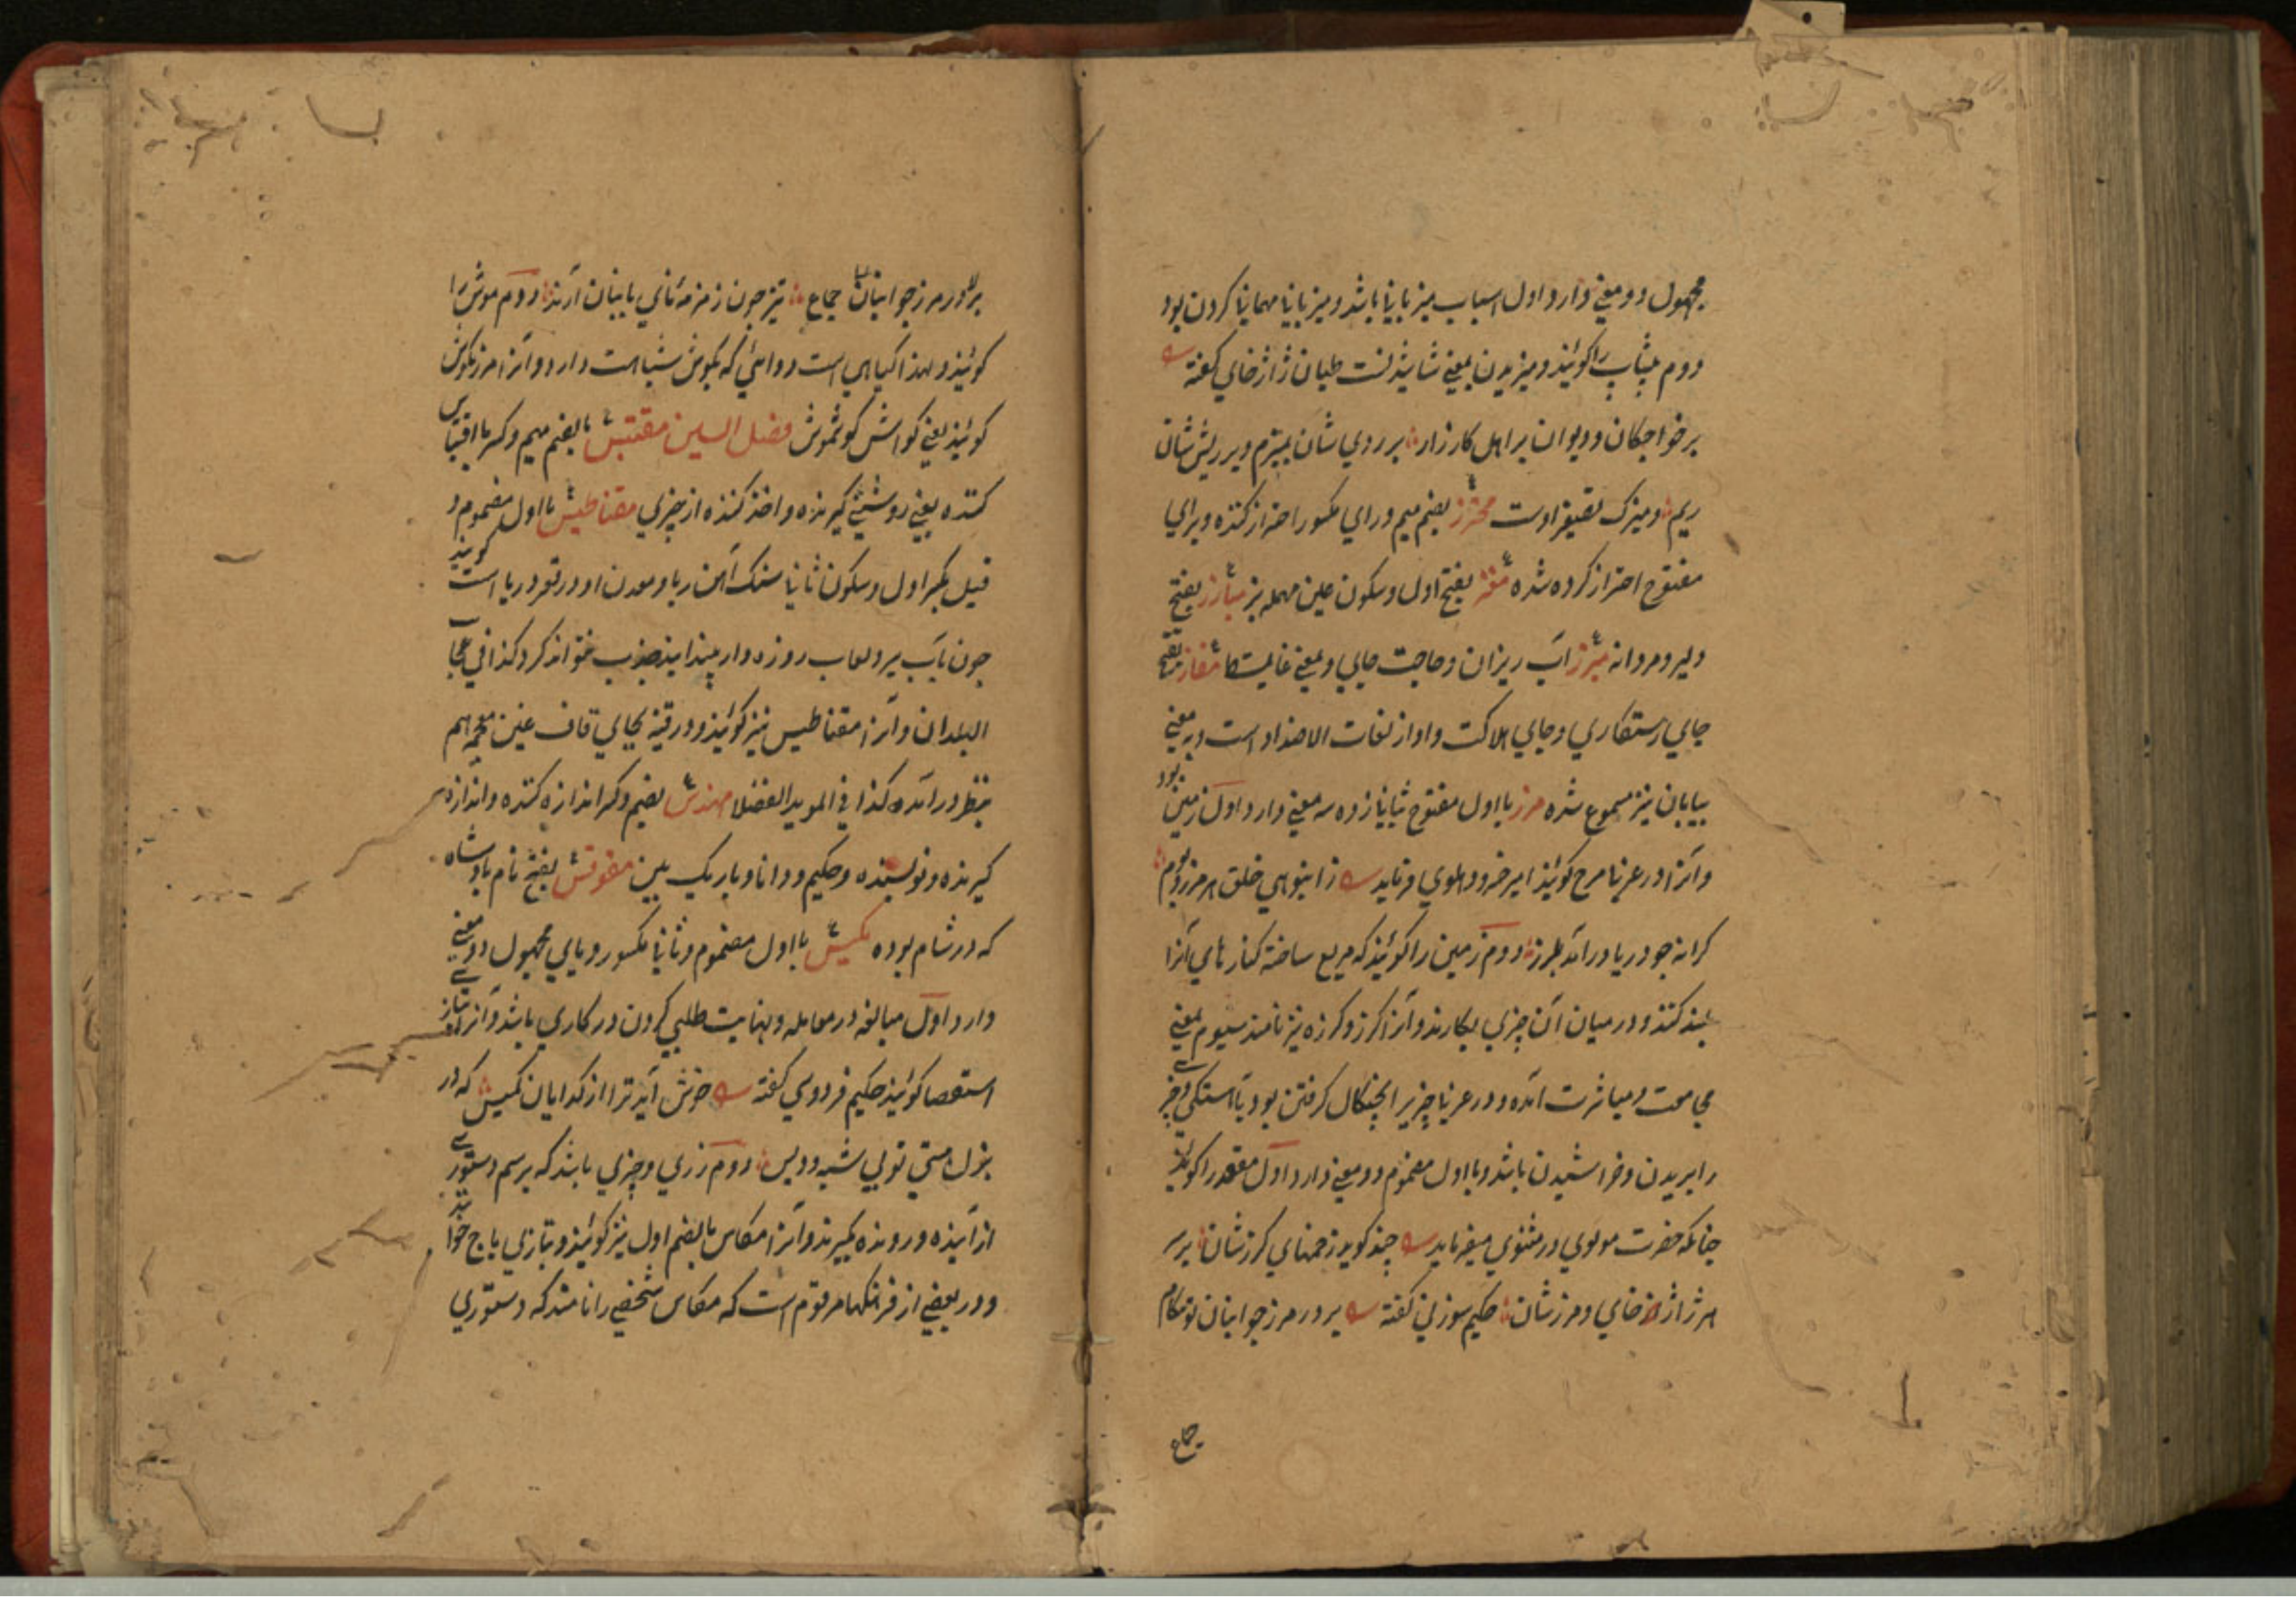 مجهول دو معنی دارد اول اسباب میزبانی باشد و میزبانی مهمانی کردن بود
دوم پیشاب را کوئید و میزیدن بمعنی شاشیدنست طیان ژاژخای کفته
بر خواجکان و دیوان براهل کارزار بر روی شان بمیزم و بر ریش شان
ریم و میزک تصغیر اوست محترز بضم میم و رای مکسور احتراز کننده و برای
مفتوح احتراز کرده شده معز بفتح اول و سکون عین مهمله بز مبارز بفتح
دلیر و مردانه مبرز آب ریزان و حاجت جای و بمعنی غایت کا مفاز بفتح
جای رستکاری و جای هلاکت و او از لغات الاضداد است و به معنی
بیابان نیز مسموع شده مرز با اول مفتوح بثانی زده سه معنی دارد اول زمین بود
و آنرا در عربی مرج کویند امیر خسرو دهلوی فرماید ز انبوهی خلق هر مرز و بوم
کرانه جو دریا درآمد بلرز دوم زمین را کوئید که مربع ساخته کنارهای آنرا
بلند کنند و در میان آن چیزی بکارند و آنرا کرز و کرزه نیز نامند سیوم بمعنی
مجامعت و مباشرت آمده و در عربی چیزیرا بچنکال کرفتن بود باآستکی و چیزی
را بریدن و خراشیدن باشد و با اول مضموم دو معنی دارد اول مقعد را کویند
چنانکه حضرت مولوی در مثنوی میفرماید چند کوبد زخمهای کرزشان بر سر
هر ژاژخای و مرزشان حکیم سوزنی کفته بر در مرز جوانبان تو مکام
جماع
بر در مرز جوانبان جماع تیز چون زمزمه نای بابنان آرند دوم موش را
کوئید و لهذا کیاهی است دوائی که بکوش شباهت دارد و آنرا مرزنکوش
کوئید یعنی کواش کوشموش فصل السین مقتبس بالضم میم و کسر با اقتباس
کننده یعنی روشنی کیرنده و اخذ کننده از چیزی مقناطیس با اول مضموم و
قیل بکسر اول و سکون ثانی سنک آهن ربا و معدن او در قعر دریا است کویند
چون بآب سیر و لعاب روزه دار بیندایند جذب نتواند کرد کذا فی عجایب
البلدان و آنرا مقناطیس نیز کوئید و در قنیه بجای قاف غین معجمه هم
بنظر درآمده کذا فی الموید الفضلا مهندس بضم و کسر اندازه کننده و اندازه
کیرنده و نویسنده و حکیم و دانا و باریک بین مقوقس بفتح نام پادشاه
که در شام بوده مکیس با اول مضموم و ثانی مکسور و یای مجهول دو معنی
دارد اول مبالغه در معامله و نهایت طلبی کردن در کاری باشد و آنرا بتازی
استقصا کوئید حکیم فردوسی کفته خوش آید ترا از کدایان مکیس که در
بزل مستی تو بی شبه و دیس دوم زری و چیزی باشد که برسم دستوری
از آینده و رونده بکیرند و آنرا مکاس بالضم اول نیز کوئید و بتازی باج خوانند
و در بعضی از فرهنکها مرقوم است که مکاس شخصی را نامند که دستوری